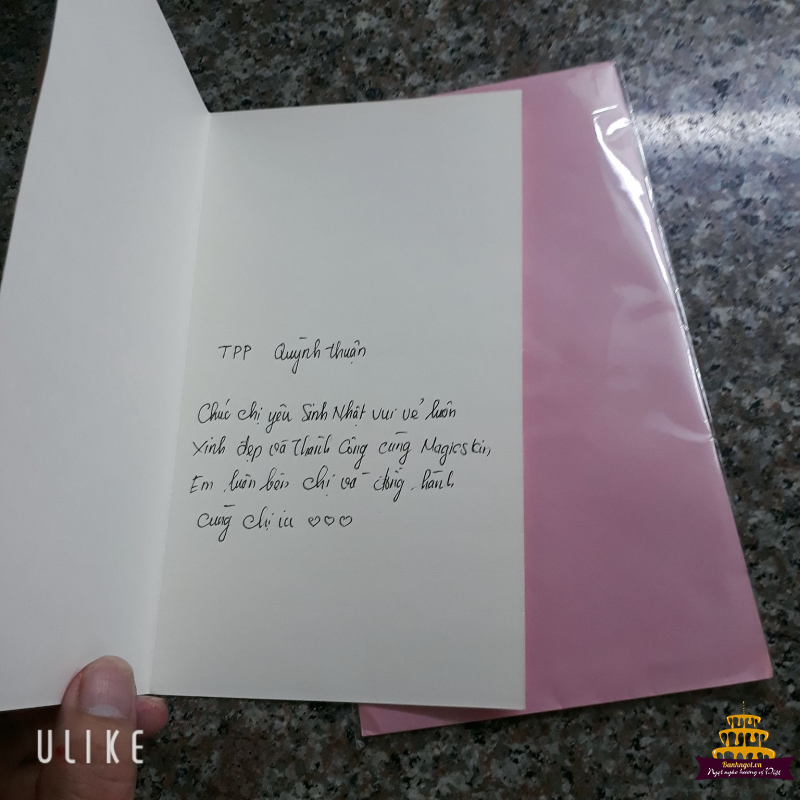 TPP Quỳnh thuận
Chúc chị yêu Sinh Nhật vui vẻ luôn
Xinh đẹp và Thành Công cùng Magicskin,
Em luôn bên chị và đồng hành
cùng chị iu ♡♡♡
ULIKE
Banhngot.vn
Ngọt ngào hương vị Việt